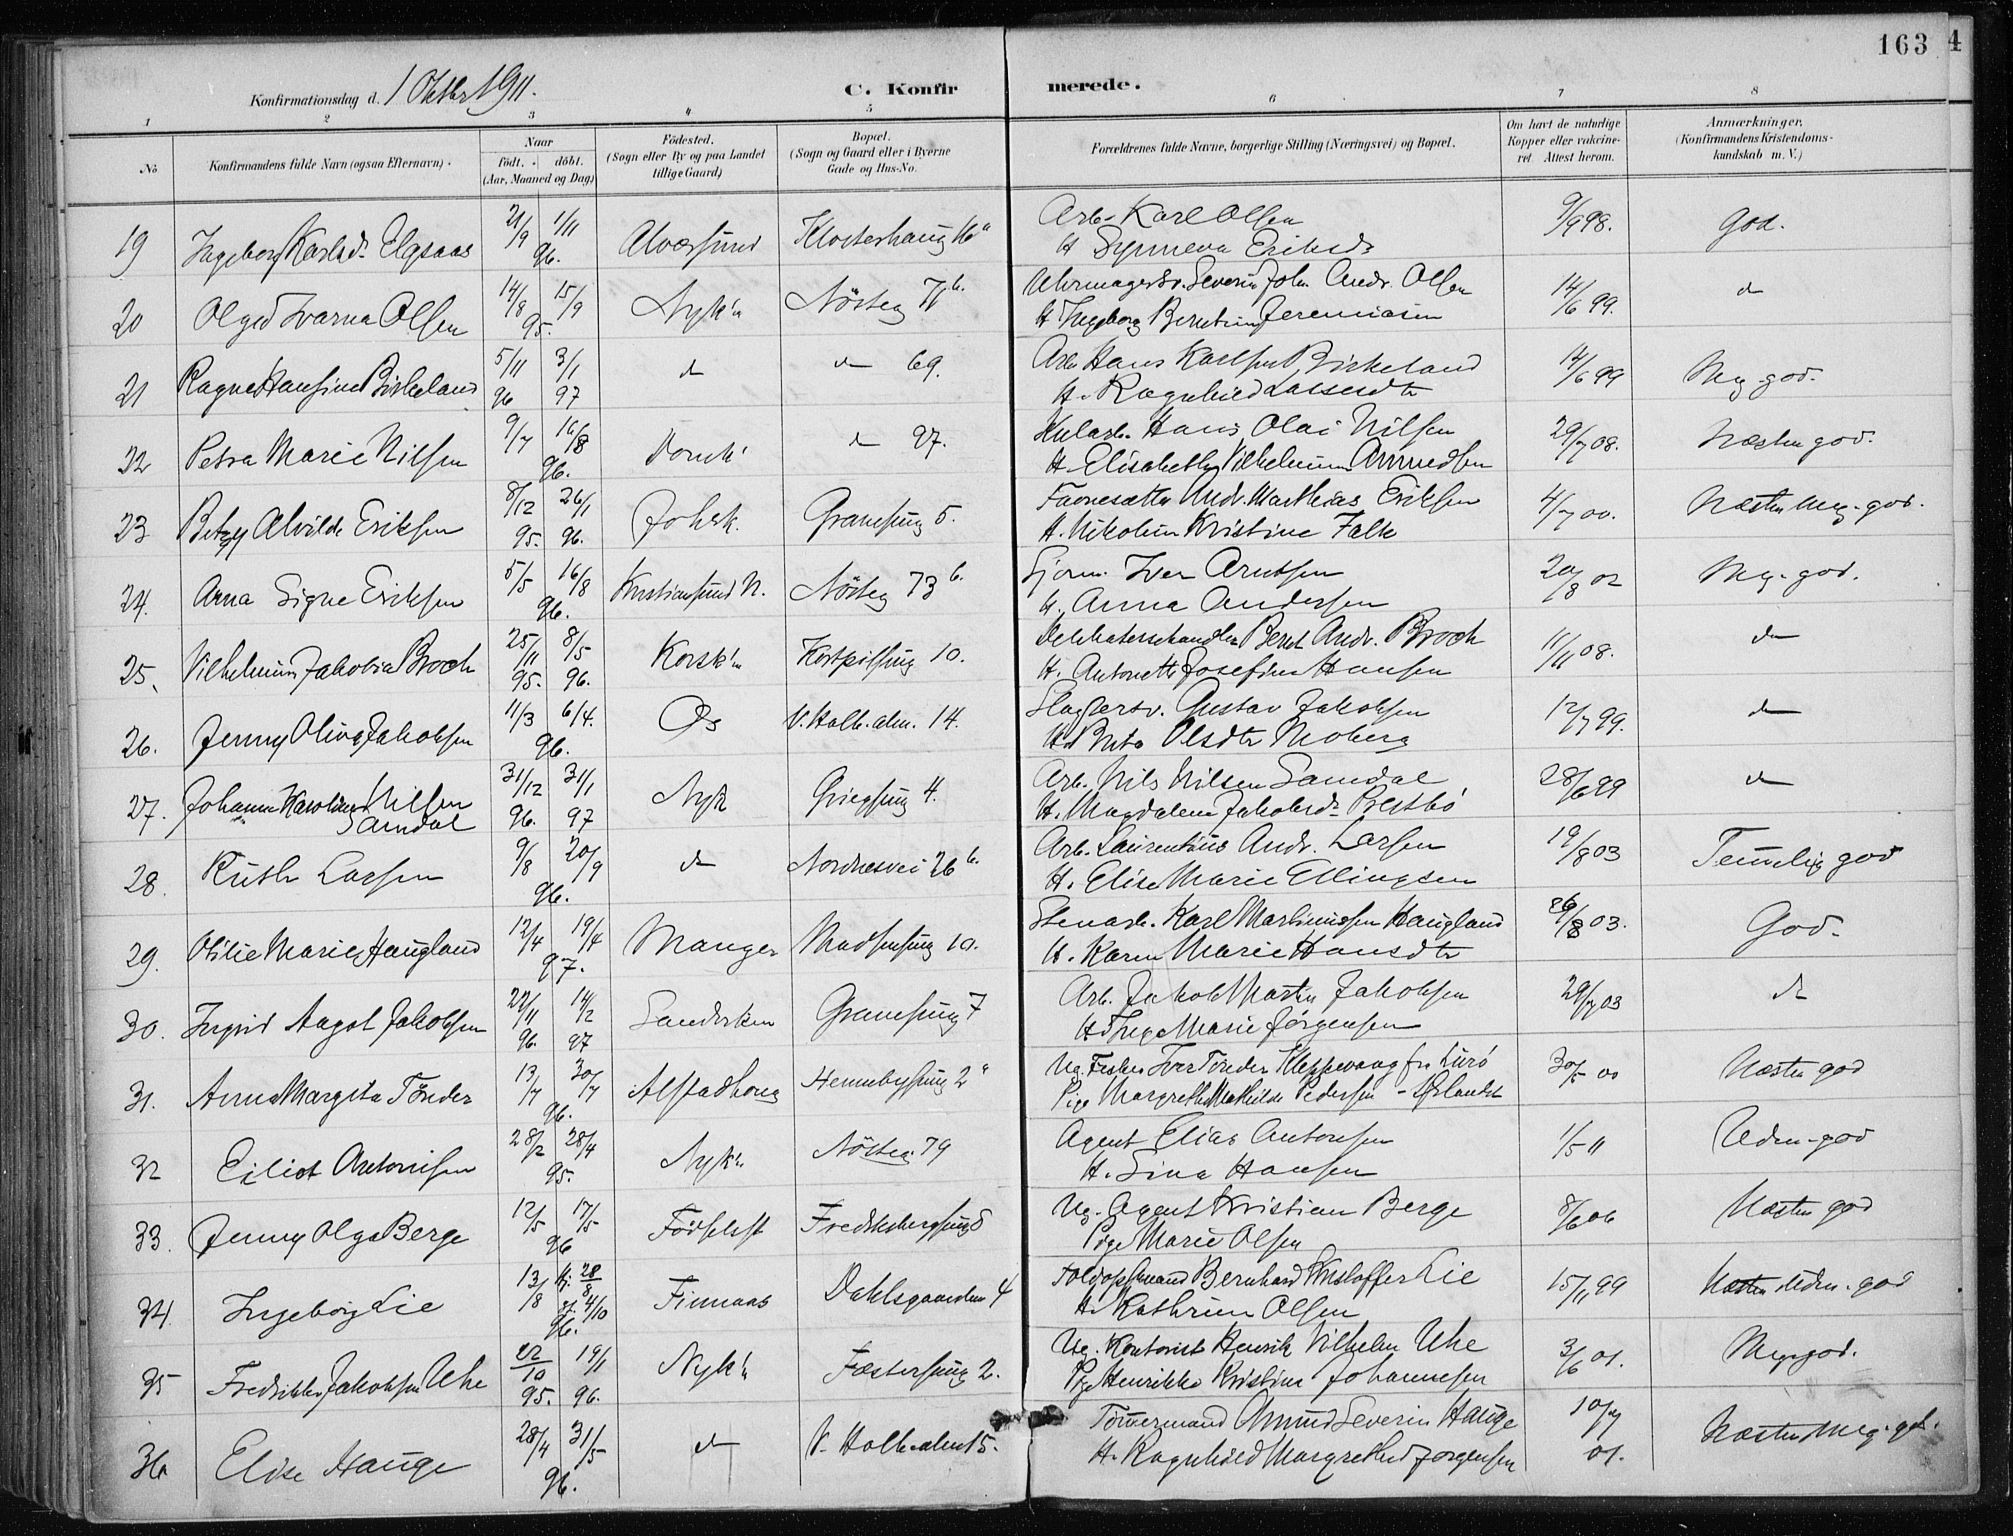 163
4
Konfirmationsdag d. 1 Oktbr 1911.
C. Konfirmerede.
1 2 3 4 5 6 7 8
No
Konfirmandens fulde Navn (ogsaa Efternavn).
Naar
födt. döbt.
(Aar, Maaned og Dag)
Födested.
(Sogn eller By og paa Landet
tillige Gaard)
Bopæl.
(Sogn og Gaard eller i Byerne
Gade og Hus-No.
Forældrenes fulde Navne, borgerlige Stilling (Næringsvei) og Bopæl.
Om havt de naturlige
Kopper eller vakcine-
ret Attest herom.
Anmærkninger,
(Konfirmandens Kristendoms-
kundskab m. V.)
19 Ingeborg Karlsd. Elgsaas 21/9 1/11 96. Alversund Klosterhaug 16a
Arb. Karl Olsen 9/9 98. God.
H. Synneva Eriksdr
20 Olga Ivarna Olsen 14/8 15/9 95. Nyk'n Nösteg 71b.
Uhrmagersv. Severin Joh. Andr. Olsen 14/6 99. d
H. Ingeborg Berntine Jeremiasen
21 Ragna Hansine Birkeland 5/11 96 3/1 97 d d 69.
Arb Hans Karlsen Birkeland 14/6 99 Meg. god.
H. Ragnhild Lassesdtr
22 Petra Marie Nilsen 9/7 16/8 96. Domk' d 97.
Kularb. Hans Olai Nilsen 29/7 08. Næsten god.
H. Elisabeth Vilhelmine Amundsen
23 Betzy Alvilde Eriksen 8/12 95. 26/1 96. Johsk. Gransmug 5.
Farvesætter Andr. Matthias Eriksen 4/7 00. Næsten meg. god.
H. Nikoline Kristine Falk
24. Arna Signe Eriksen 5/5 16/8 96. Kristiansund N. Nösteg 73b.
Sjöm. Iver Arntsen 20/8 02 Meg. god.
H. Anna Andersen
25. Vilhelmine Jakobia Broch 25/11 95. 8/5 96. Korsk'n Kortpilsmug 10.
Delikatessehandler Bernt Andr. Broch 11/11 08. d
H. Antonette Josefine Hansen
26. Jenny Oliva Jakobsen 11/3 6/4. 96. Os V. Holb. alm. 14.
Slagtersv. Gustav Jakobsen 12/7 99. d
H. Brita Olsdtr Moberg
27. Johanna Karoline Nilsen
Samdal 31/12 96. 31/1 97 Nyk Griegsmug 4.
Arb. Nils Nilsen Samdal 28/6 99 d
H. Magdalena Jakobsd. Prestbö
28. Ruth Larsen 9/8 20/9 96. d Nordnesvei 26b.
Arb. Laurentius Andr. Larsen 19/8 03 Temmelig god
H. Elise Marie Ellingsen
29. Otilie Marie Haugland 12/4 19/4 97. Manger Madsensmug 10.
Stenarb. Karl Martinussen Haugland 26/8 03. God.
H. Karen Marie Hansdtr
30. Ingrid Aagot Jakobsen 22/11 96. 14/2 97 Sandviken Gransmug 7
Arb. Jakob Martin Jakobsen 29/7 03 d
H. Inga Marie Jörgensen
31. Anna Margita Tönder 13/7 30/7 96. Alstadhoug Hennebysmug 2a
Ug. Fisker Iver Tönder Kleppevaag fra Lurö 30/5 00 Næsten god
Pige Margrethe Mathilde Pedersen - Ørlandet
32 Eiliot Antonisen 28/2 28/4 95. Nyk'n Nösteg 79
Agent Elias Antonsen 1/5 11 Uden-god
H. Lina Hansen
33. Jenny Olga Berge 12/5 17/5 96 Födselsst Fredriksbergsmug 8
Ug. Agent Kristian Berge 8/6 06 Næsten god
Pige Marie Olsen
34. Ingeborg Lie 13/8 Hj. 28/8 st. 4/10 96. Finnaas Dahlsgaarden 4
Toldopsynsmand Bernhard Kristoffer Lie 15/11 99 Uden-god
H. Kathrine Olsen
35 Fredrikke Jakobsen Uhe 22/10 95. 19/1 96. Nyk'n Fæstersmug 2.
Ug. Kontorist Henrik Vilhelm Uhe 3/6 01. Meg. god.
Pige Henrikke Kristina Johannesen
36 Elise Hauge 28/4 31/5 96. d V. Holb. alm 15.
Tömmermand Amund Severin Hauge 10/7 01. Næsten meg. god.
H. Ragnhild Margrethe Jörgensen